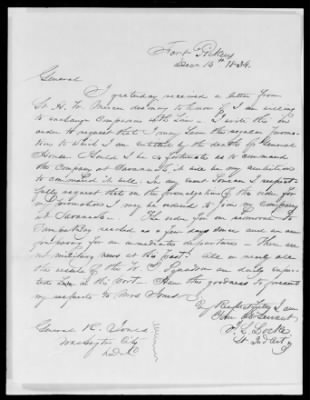 Fort Pickens
Decr 13th 1834.
General
I yesterday received a letter from
Lt. H. W. Mercer desiring to know if I am willing
to exchange Companies with him – I write this in
order to request that I may have the regular promo-
tion to which I am entitled by the death of General
should I be so fortunate as to command
the Company at Savannah, it will be my ambition
to command it well. In any event I respect-
fully request that on the promulgation of the order for
Promotions I may be ordered to join my Company
at Savannah – The order for our removal to
Tampa Bay reached us a few days since and we are
preparing for an immediate departure – There are
no military news at this post. All or nearly all
the vessels of the W. I. Squadron are daily expected
here at this Port. Have the goodness to present
my respects to Mrs Jones
Very Respectfully I am
Your Obt Servant
J. L. Locke
Lt 2nd Arty
General R. Jones
Washington City